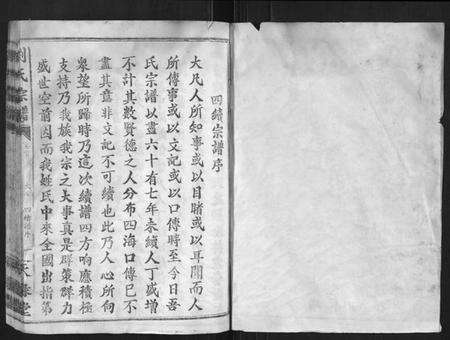 四續宗譜序
大凡人所知事或以目睹或以耳聞而人
所傳事或以文記或以口傳時至今日吾
氏宗譜以盡六十有七年未續人丁盛增
不計其數賢德之人分布四海口傳已不
盡其意非文記不可續也此乃人心所向
眾望所歸時乃這次續譜四方响應積極
支持乃我族我宗之大事真是群策群力
盛世空前因而我姓氏中來全國出指第
劉氏宗譜